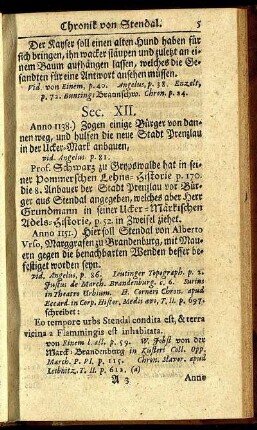 Chronik von Stendal. 5
Der Kayser soll einen alten Hund haben für
sich bringen, ihn wacker stäupen und zuletzt an ei-
nem Baum aufhängen lassen, welches die Ge-
sandten für eine Antwort ansehen müssen.
Vid. von Einem. p. 40. Angelus, p. 38. Enzelt,
p. 72. Bunting: Braunschw. Chron. p. 24.
Sec. XII.
Anno 1138.) Zogen einige Bürger von dan-
nen weg, und hulfen die neue Stadt Prenzlau
in der Ucker-Mark anbauen,
vid. Angelus p. 81.
Prof. Schwarz zu Greyswalde hat in sei-
ner Pommerschen Lehns-Historie p. 170.
die 8. Anbauer der Stadt Prenzlau vor Bür-
ger aus Stendal angegeben, welches aber Herr
Grundmann in seiner Ucker-Märkischen
Adels-Historie, p. 52. in Zweifel ziehet.
Anno 1151.) Hier soll Stendal von Alberto
Urso, Marggrafen zu Brandenburg, mit Mau-
ern gegen die benachbarten Wenden besser be-
festiget worden seyn.
vid. Angelus, p. 86. Leutinger Topograph. p. 2.
Justus de March. Brandenburg. c. 6. Surins
in Theatro Urbium. H. Corneri Chron. apud
Eccard in Corp. Histor. Medii aevi, T. II. p. 697.
schreibet:
Eo tempore urbs Stendal condita est, & terra
vicina a Flammingis est inhabitata.
von Einem l. all. p. 59. W. Jobst von der
Marck: Brandenburg in Kusteri Coll. Opp.
March. P. VI. p. 115. Chron. Haver. apud
Leibnitz. T. II. p. 612. (a)
A 3 Anno